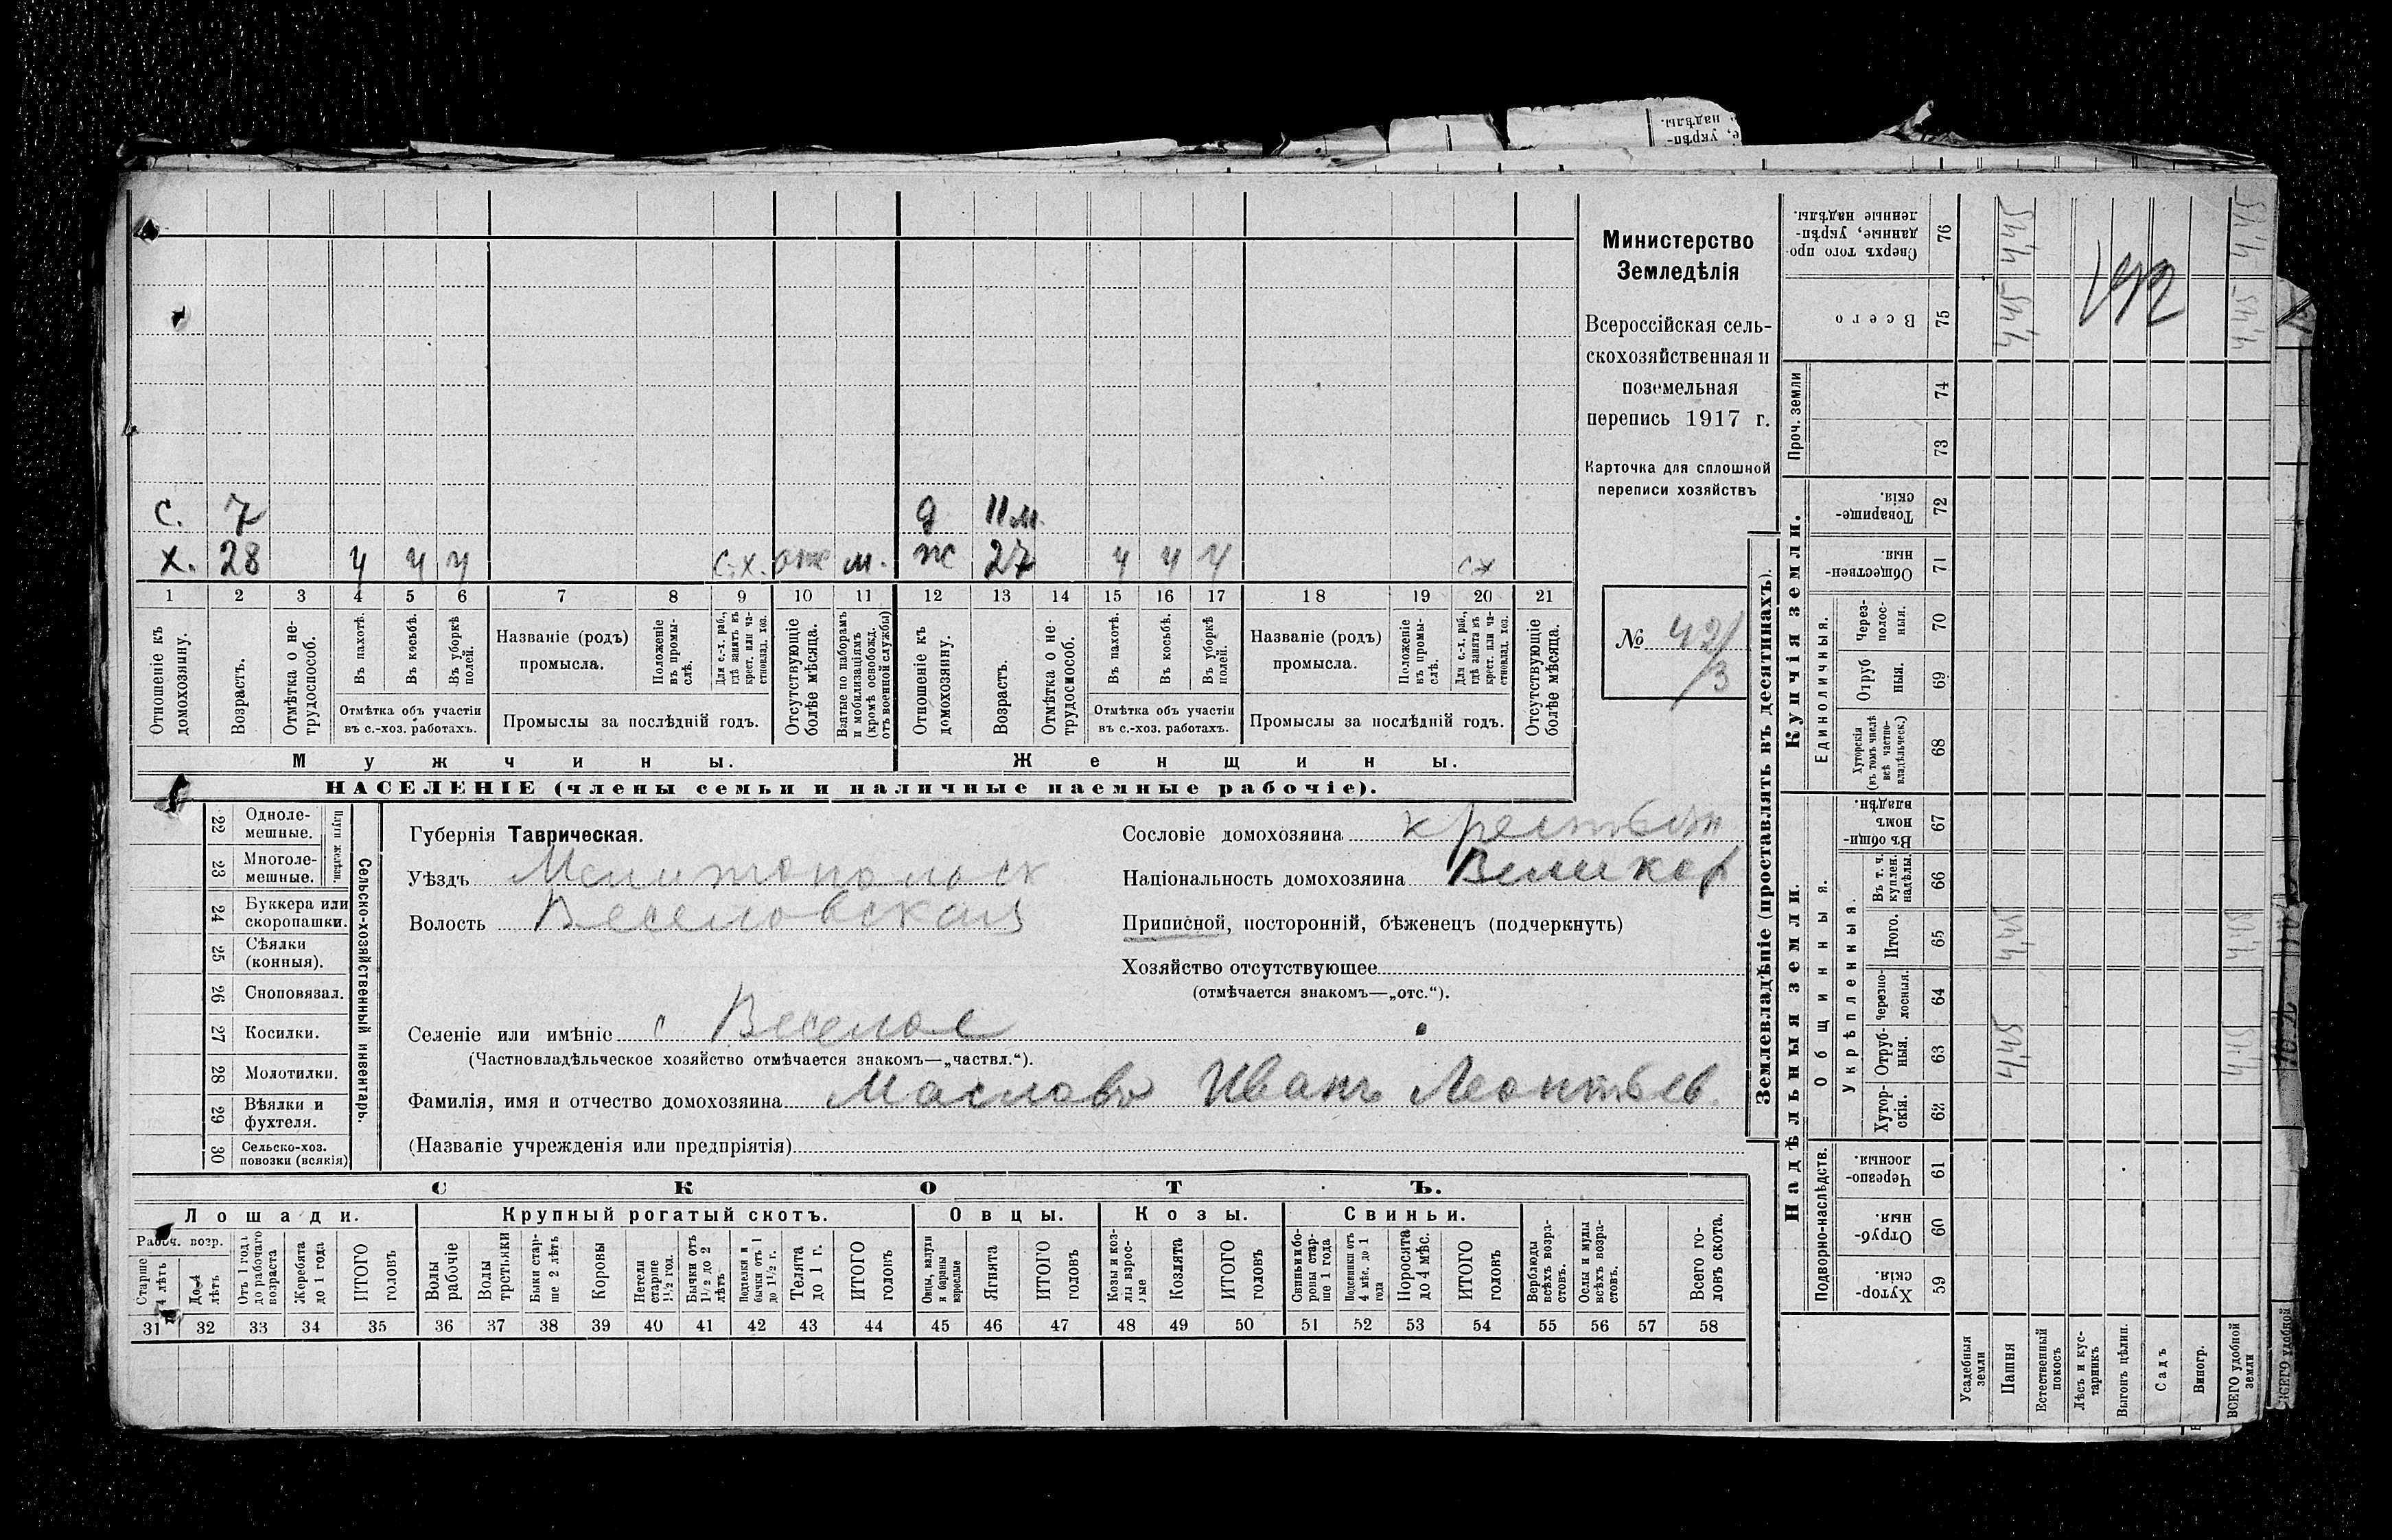 надѣлы.
е, укрѣп-
с. 7 д 11 м.
х. 28 ч ч ч с.х. отс м. ж 27 ч ч ч сх
1 2 3 4 5 6 7 8 9 10 11 12 13 14 15 16 17 18 19 20 21
Отношеніе къ домохозяину.
Возрастъ.
Отмѣтка о не-трудоспособ.
Въ пахотѣ.
Въ косьбѣ.
Въ уборкѣ полей.
Отмѣтка объ участіи
въ с.-хоз. работахъ.
Названіе (родъ)
промысла.
Положеніе въ промы-слѣ.
Для с.-х. раб., гдѣ занятъ въ крест. или ча-стновлад. хоз.
Промыслы за послѣдній годъ.
Отсутствующіе болѣе мѣсяца.
Взятые по наборамъ и мобилизаціямъ (кромѣ освобожд. отъ военной службы)
Отношеніе къ домохозяину.
Возрастъ.
Отмѣтка о не-трудоспособ.
Въ пахотѣ.
Въ косьбѣ.
Въ уборкѣ полей.
Отмѣтка объ участіи
въ с.-хоз. работахъ.
Названіе (родъ)
промысла.
Положеніе въ промы-слѣ.
Для с.-х. раб., гдѣ занята въ крест. или ча-стновлад. хоз.
Промыслы за послѣдній годъ.
Отсутствующіе болѣе мѣсяца.
Мужчины. Женщины.
НАСЕЛЕНІЕ (члены семьи и наличные наемные рабочіе).
Министерство
Земледѣлія
Всероссійская сель-
скохозяйственная и
поземельная
перепись 1917 г.
Карточка для сплошной
переписи хозяйствъ
№ 42/3
Сельско-хозяйственный инвентарь.
Плуги желѣзн.
22 Одноле-мешные.
23 Многоле-мешные.
24 Буккера или скоропашки.
25 Сѣялки (конныя).
26 Сноповязал.
27 Косилки.
28 Молотилки.
29 Вѣялки и фухтеля.
30 Сельско-хоз. повозки (всякія)
Губернія Таврическая.
Уѣздъ Мелитопольск
Волость Веселовская
Селеніе или имѣніе с Веселое
(Частновладѣльческое хозяйство отмѣчается знакомъ—„частвл.“).
Фамилія, имя и отчество домохозяина Масловъ Иванъ Леонтьев.
(Названіе учрежденія или предпріятія)
Сословіе домохозяина крестьян
Національность домохозяина Великор
Приписной, посторонній, бѣженецъ (подчеркнуть)
Хозяйство отсутствующее
(отмѣчается знакомъ—„отс.“).
СКОТЪ.
Лошади. Крупный рогатый скотъ. Овцы. Козы. Свиньи.
Рабоч. возр.
Старше 4 лѣтъ
До 4 лѣтъ
Отъ 1 года до рабочаго возраста
Жеребята до 1 года
ИТОГО головъ
Волы рабочіе
Волы третьяки
Быки стар-ше 2 лѣтъ
Коровы
Нетели старше 1½ год.
Бычки отъ 1½ до 2 лѣтъ
Подтелки и бычки отъ 1 до 1½ г.
Телята до 1 г.
ИТОГО головъ
Овцы, валухи и бараны взрослые
Ягнята
ИТОГО головъ
Козы и коз-лы взрос-лые
Козлята
ИТОГО головъ
Свиньи и бо-ровы стар-ше 1 года
Подсвинки отъ 4 мѣс. до 1 года
Поросята до 4 мѣс.
ИТОГО головъ
Верблюды всѣхъ возра-стовъ.
Ослы и мулы всѣхъ возра-стовъ.
Всего го-ловъ скота.
31 32 33 34 35 36 37 38 39 40 41 42 43 44 45 46 47 48 49 50 51 52 53 54 55 56 57 58
Землевладѣніе (проставлять въ десятинахъ).
Надѣльныя земли. Купчія земли. Проч. земли
Подворно-наслѣдств. Общинныя. Единоличныя.
Укрѣпленныя.
Хутор-скія. 59
Отруб-ныя. 60
Черезпо-лосныя. 61
Хутор-скія. 62
Отруб-ныя. 63
Черезпо-лосныя. 64
Итого. 65
Въ т. ч. куплен. надѣлы. 66
Въ общи-номъ владѣн. 67
Хуторскія (въ томъ числѣ всѣ частно-владѣльческ.) 68
Отруб ныя. 69
Через-полос-ныя. 70
Обществен-ныя. 71
Товарище-скія. 72
73
74
Всего 75
Сверхъ того про-данные, укрѣп-ленные надѣлы. 76
Усадебныя земли
Пашня 4,45 4,45 4,45 4,45
Естественный покосъ
Лѣсъ и кус-тарникъ
Выгонъ цѣлин.
Садъ
Виногр.
ВСЕГО удобной земли 4,45 4,45 4,45 4,45
ВСЕГО удобной